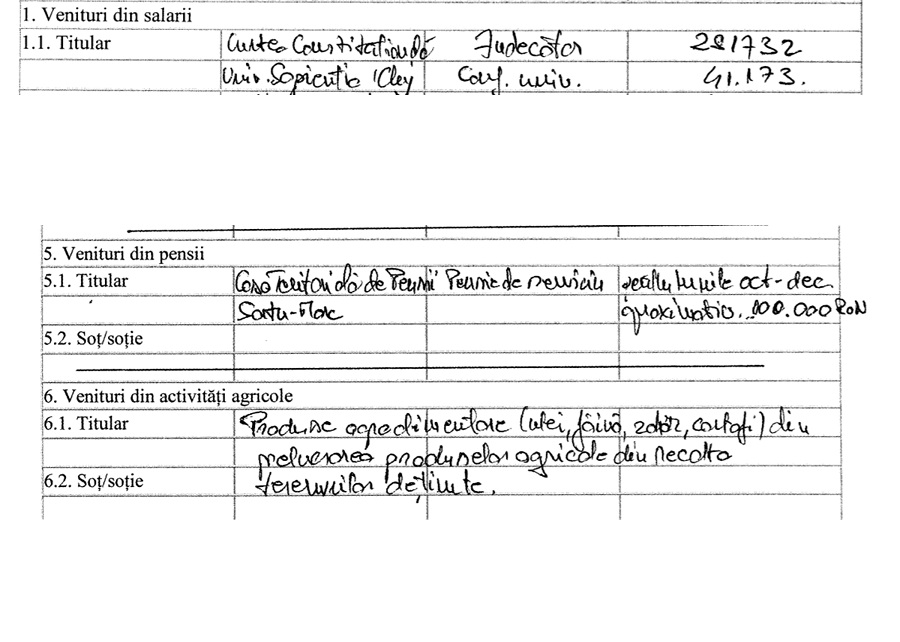 1. Venituri din salarii
1.1. Titular Curtea Constituțională Judecător 281732
Univ. Sapientia Cluj Conf. univ. 41.173.
5. Venituri din pensii
5.1. Titular Casa Teritorială de Pensii Pensie de serviciu pentru lunile oct-dec
Satu-Mare aproximativ 100.000 RON
5.2. Soț/soție
6. Venituri din activități agricole
6.1. Titular Produse agroalimentare (ulei, făină, zahăr, cartofi) din
prelucrarea produselor agricole din recolta
6.2. Soț/soție terenurilor deținute.